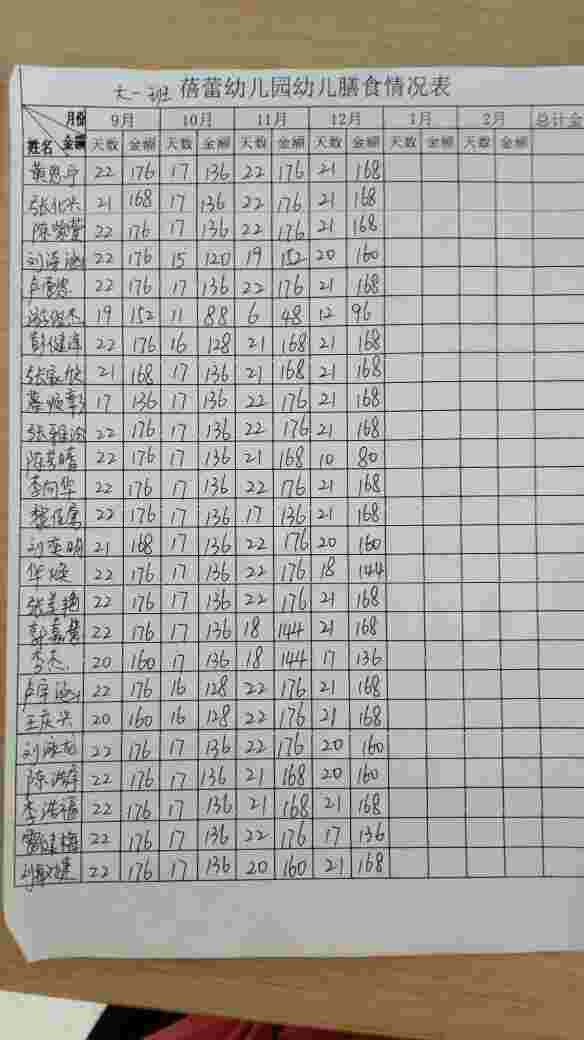 大一班 蓓蕾幼儿园幼儿膳食情况表
月份 9月 10月 11月 12月 1月 2月 总计金
姓名 金额 天数 金额 天数 金额 天数 金额 天数 金额 天数 金额 天数 金额
22 176 17 136 22 176 21 168
21 168 17 136 22 176 21 168
22 176 17 136 22 176 21 168
22 176 15 120 19 152 20 160
22 176 17 136 22 176 21 168
19 152 11 88 6 48 12 96
22 176 16 128 21 168 21 168
21 168 17 136 21 168 21 168
17 136 17 136 22 176 21 168
22 176 17 136 22 176 21 168
22 176 17 136 21 168 10 80
李向华 22 176 17 136 22 176 21 168
22 176 17 136 17 136 21 168
21 168 17 136 22 176 20 160
22 176 17 136 22 176 18 144
22 176 17 136 22 176 21 168
22 176 17 136 18 144 21 168
李杰 20 160 17 136 18 144 17 136
22 176 16 128 22 176 21 168
王庆兴 20 160 16 128 22 176 21 168
22 176 17 136 22 176 20 160
22 176 17 136 21 168 20 160
李浩福 22 176 17 136 21 168 21 168
22 176 17 136 22 176 17 136
22 176 17 136 20 160 21 168